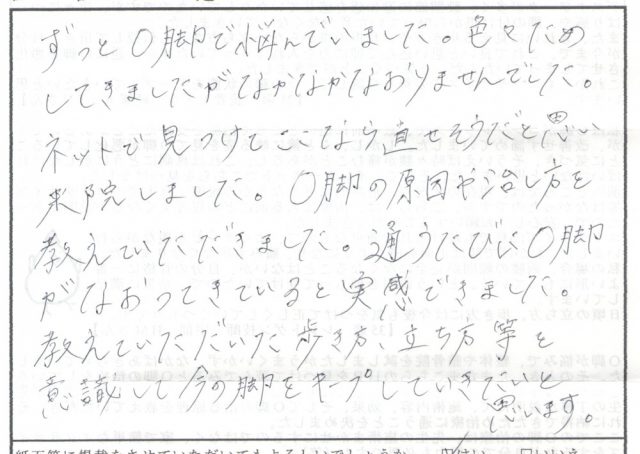 ずっとO脚で悩んでいました。色々ため
してきましたがなかなかなおりませんでした。
ネットで見つけてここなら直せそうだと思い
来院しました。O脚の原因や治し方を
教えていただきました。通うたびにO脚
がなおってきていると実感できました
教えていただいた歩き方、立ち方等を
意識して今の脚をキープしていきたいと
思います